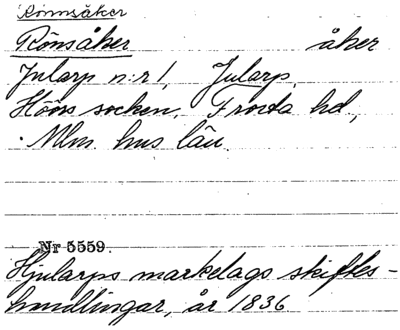 Rönnsåker
Rönsåker åker
Jularp n:r 1, Jularp,
Höörs socken, Frosta hd,
Mlm. hus län.
Nr 5559.
Hjularps markelags skiftes-
handlingar, år 1836